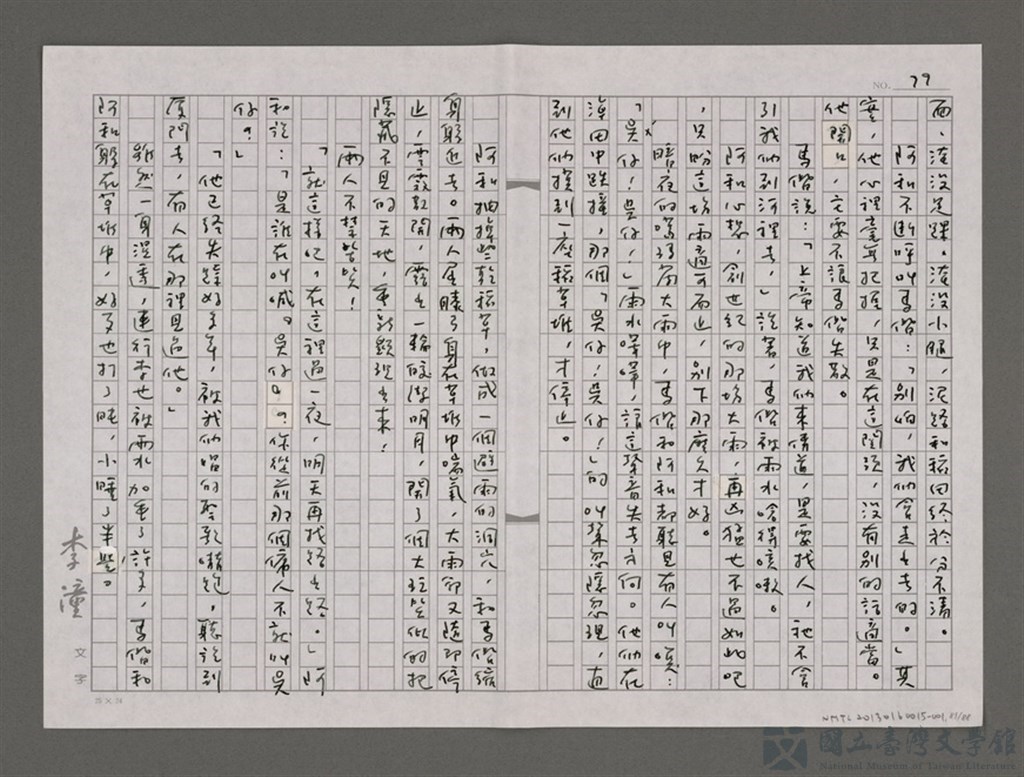 NO. 79
面、淹沒足踝。淹沒小腿,泥路和稻田終於分不清。
阿和不斷呼叫馬偕:「別怕,我們會走出去的。」其
實,他心裡毫無把握,只是在這關頭,沒有別的話適當。
他開口,又要不讓馬偕失散。
馬偕說:「上帝知道我們來傳道,是要找人,祂不會
引我們到河裡去,」說著,馬偕被雨水嗆得咳嗽。
阿和心想,創世紀的那場大雨,再凶猛也不過如此吧
,只盼這場雨適可而止,別下那麼久才好。
暗夜的滂沱大雨中,馬偕和阿和都聽見有人叫喚:
「吳仔!吳仔!」雨水嘩嘩,讓這聲音失去方向。他們在
漳田中跌撞,那個「吳仔!吳仔!」的叫聲忽隱忽現,直
到他們摸到一座稻草堆,才停止。
阿和抽掉些乾稻草,做成一個避雨的洞穴,和馬偕縮
身躲進去。兩人屈膝弓身在草堆中喘氣,大雨卻又隨即停
止,雲霧散開,露出一輪皎潔明月,開了個大玩笑似的把
隱藏不見的天地,重新顯現出來!
兩人不禁笑!
「就這樣吧,在這裡過一夜,明天再找路出路。」阿
和說:「是誰在叫喊。吳仔?你從前那個僕人不就叫吳
仔?」
「他已經失蹤好多年,被我們唱的聖歌嚇跑,聽說到
廈門去,有人在那裡見過他。」
雖然一身溼透,連行李也被雨水加重了許多,馬偕和
阿和躲在草堆中,好歹也打了盹,小睡了半些。
李潼
文字
25×24
NMTL 20130160015-001
國立臺灣文學館
National Museum of Taiwan Literature